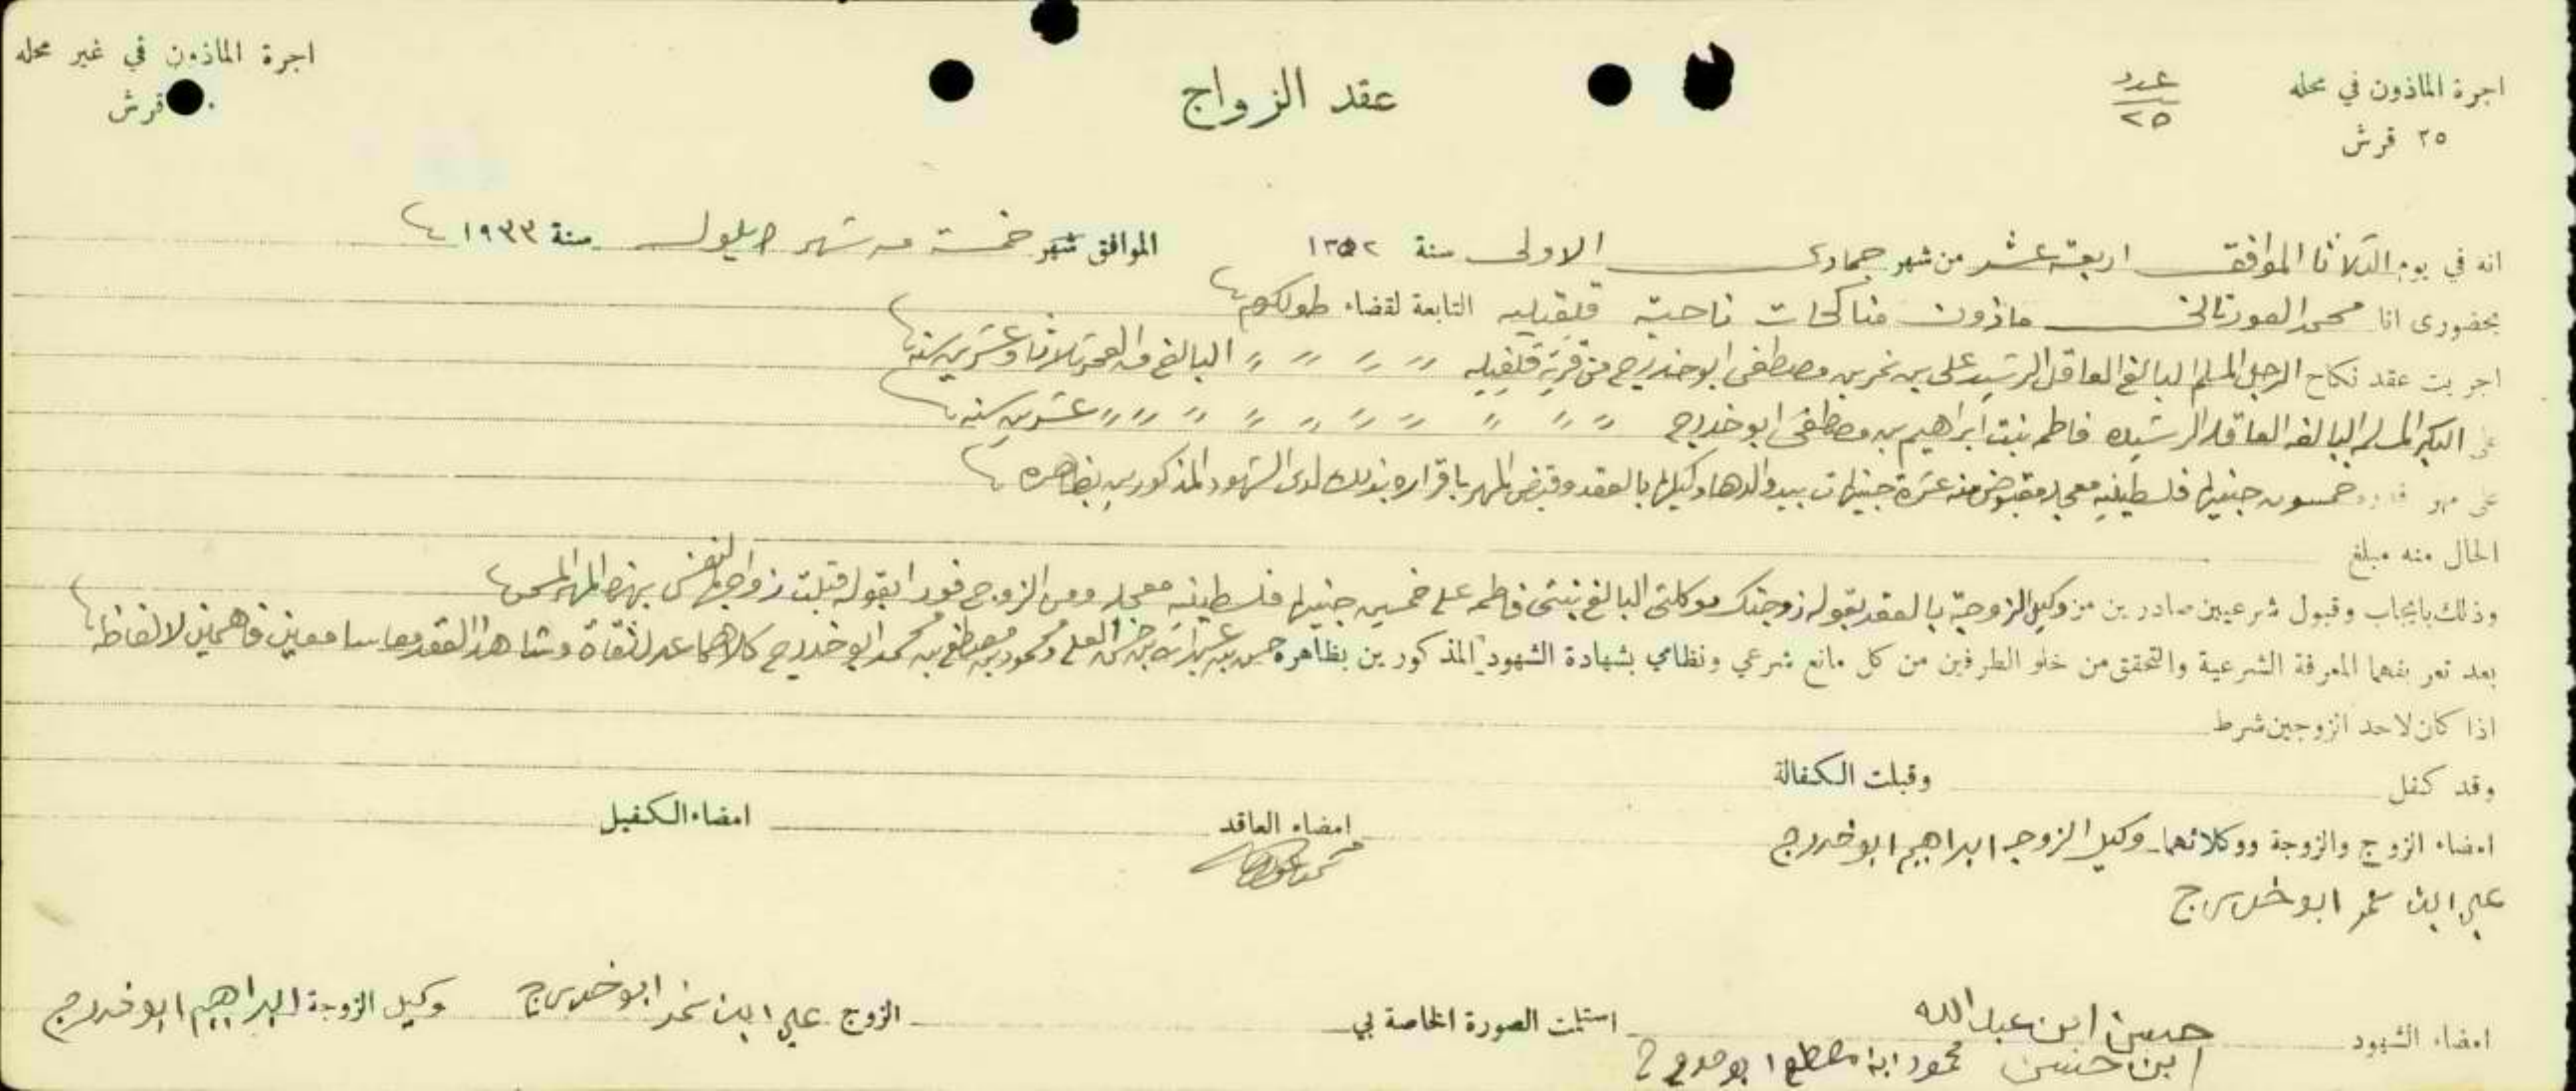 اجرة الماذون في محله
٢٥ قرش
عدد
٢٥
عقد الزواج
اجرة الماذون في غير محله
قرش
انه في يوم الثلاثا الموافق اربعة عشر من شهر جمادى الاولى سنة ١٣٥٢ الموافق شهر خمسة من شهر ايلول سنة ١٩٣٣
بحضورى انا محمد ماذون مناكحات ناحية قلقيليه التابعة لقضاء طولكرم
اجريت عقد نكاح الرجل المسلم البالغ العاقل الرشيد علي بن نمر بن مصطفى ابو خدرج من قرية قلقيليه " " " " البالغ من العمر ثلاثا وعشرين سنه
على البكر المسلمه البالغه العاقله الرشيده فاطمه بنت ابراهيم بن مصطفى ابو خدرج " " " " " " " " " " " " عشرين سنه
على مهر قدره خمسون جنيها فلسطينيه معجله مقبوض منه عشرة جنيهات بيد والدها وكيلها بالعقد وقبض المهر باقراره بذلك لدى الشهود المذكورين بظاهره
الحال منه مبلغ
وذلك بايجاب وقبول شرعيين صادرين من وكيل الزوجة بالعقد بقوله زوجتك موكلتي البالغ بنتي فاطمه على خمسين جنيها فلسطينيه معجله ومن الزوج فورا بقوله قبلت زواجها لنفسي بهذا المهر المسمى
بعد تعريفهما المعرفة الشرعية والتحقق من خلو الطرفين من كل مانع شرعي ونظامي بشهادة الشهود المذكورين بظاهره حسن بن عبدالله بن حسن العلي ومحمود بن مصطفى بن محمد ابو خدرج كلاهما عدل ثقاة وشاهدا العقد معا سامعين فاهمين لالفاظه
اذا كان لاحد الزوجين شرط
وقد كفل وقبلت الكفالة
امضاء الزوج والزوجة ووكلائهما وكيل الزوجه ابراهيم ابو خدرج امضاء العاقد امضاء الكفيل
علي ابن نمر ابو خدرج
امضاء الشهود حسن ابن عبد الله استلمت الصورة الخاصة بي الزوج علي ابن نمر ابو خدرج وكيل الزوجة ابراهيم ابو خدرج
ابن حسن محمود ابن مصطفى ابو خدرج